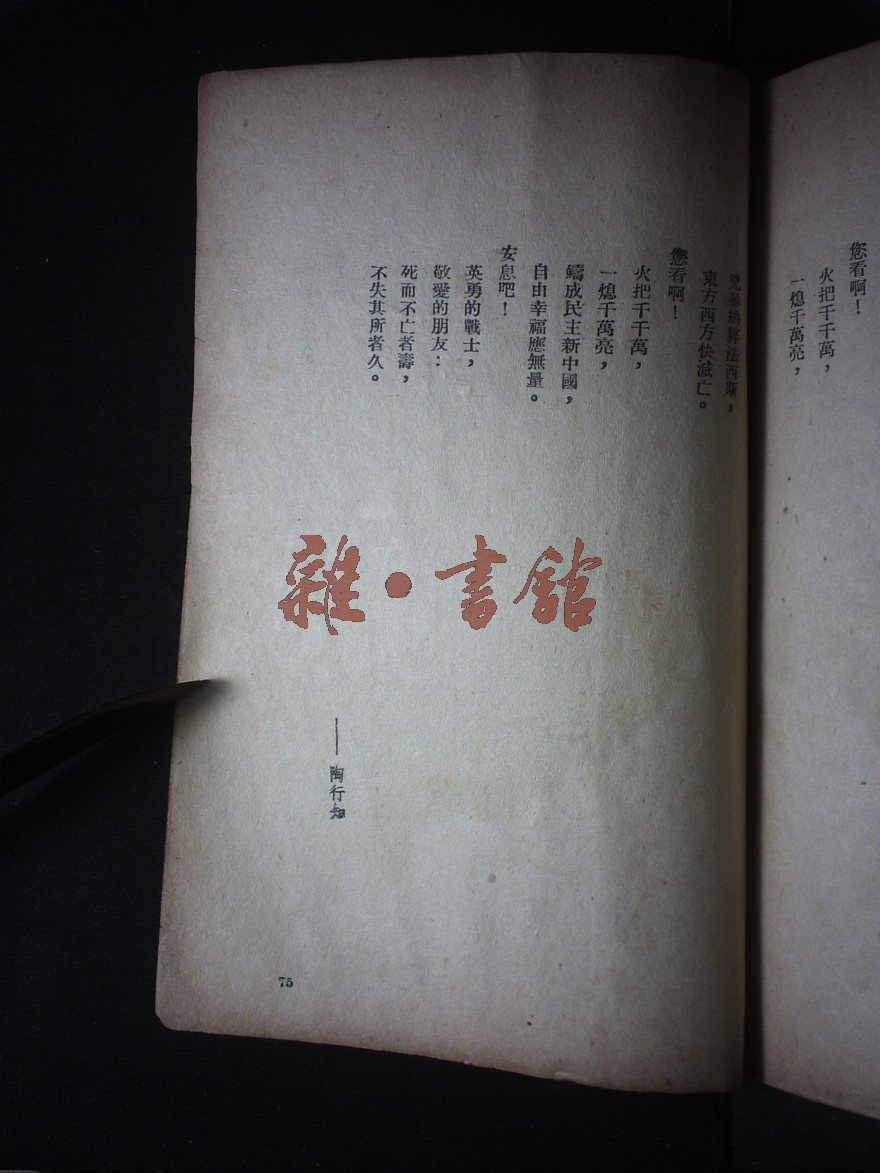 您看啊！
火把千千萬，
一熄千萬亮，
納粹法西斯，
東方西方快滅亡。
您看啊！
火把千千萬，
一熄千萬亮，
鑄成民主新中國，
自由幸福應無量。
安息吧！
英勇的戰士，
敬愛的朋友：
死而不亡者壽，
不失其所者久。
——陶行知
75
雜•書館